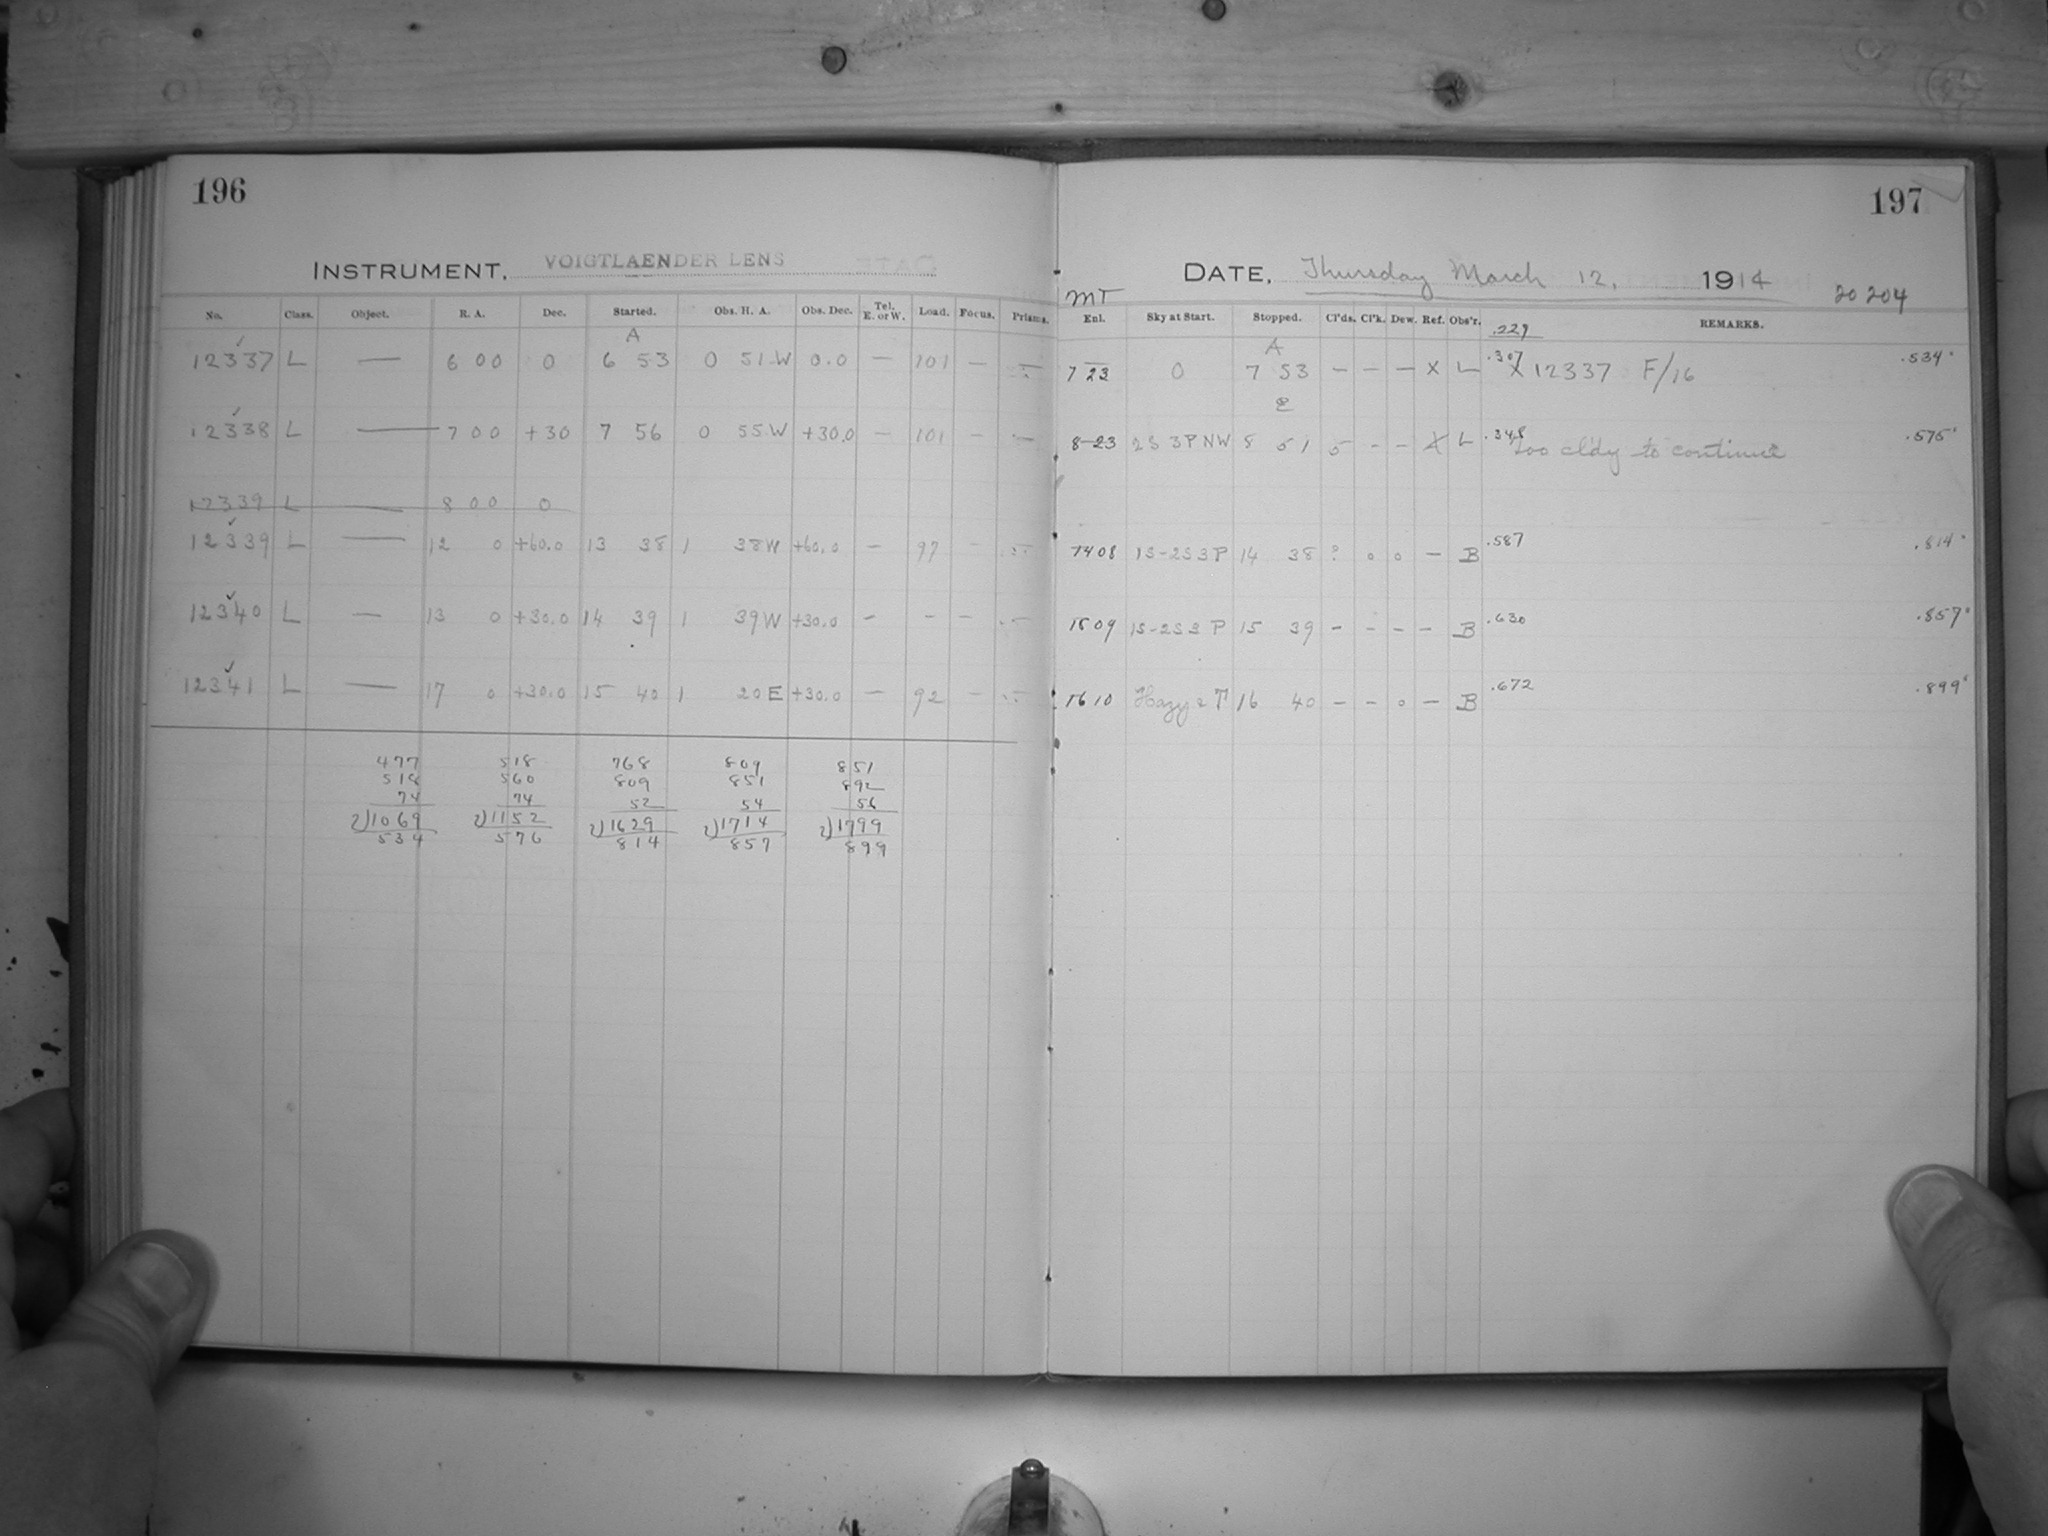 196
INSTRUMENT, VOIGTLAENDER LENS
No. Class. Object. R. A. Dec. Started. Obs. H. A. Obs. Dec. Tel. E. or W. Load. Focus. Prisms.
A
12337 L — 6 00 0 6 53 0 51 W 0.0 — 101 —
12338 L — 7 00 +30 7 56 0 55 W +30.0 — 101 — —
12339 L — 8 00 0
12339 L — 12 0 +60.0 13 38 1 38 W +60.0 — 97 —
12340 L — 13 0 +30.0 14 39 1 39 W +30.0 — - —
12341 L — 17 0 +30.0 15 40 1 20 E +30.0 — 92 —
477 518 768 809 851
518 560 809 851 892
74 74 52 54 56
2)1069 2)1152 2)1629 2)1714 2)1799
534 576 814 857 899
197
DATE, Thursday March 12, 1914
MT 20 204
Enl. Sky at Start. Stopped. Cl'ds. Cl'k. Dew. Ref. Obs'r. REMARKS.
.229
A
7 23 0 7 53 — — — X L .307 X 12337 F/16 .534
8 23 2S 3P NW 8 51 5 - - X L .348 Too cl'dy to continue .576
14 08 1S-2S 3P 14 38 ? 0 0 — B .587 .814
15 09 1S-2S 3 P 15 39 - - - - B .630 .857
16 10 Hazy 2 P 16 40 - - 0 — B .672 .899